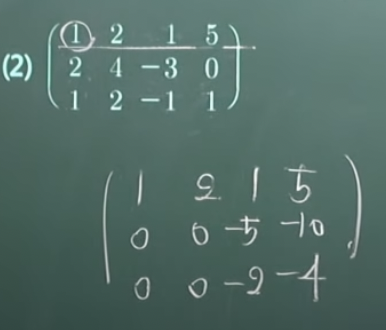 (2) 1 2 1 5
2 4 -3 0
1 2 -1 1
1 2 1 5
0 0 -5 -10
0 0 -2 -4